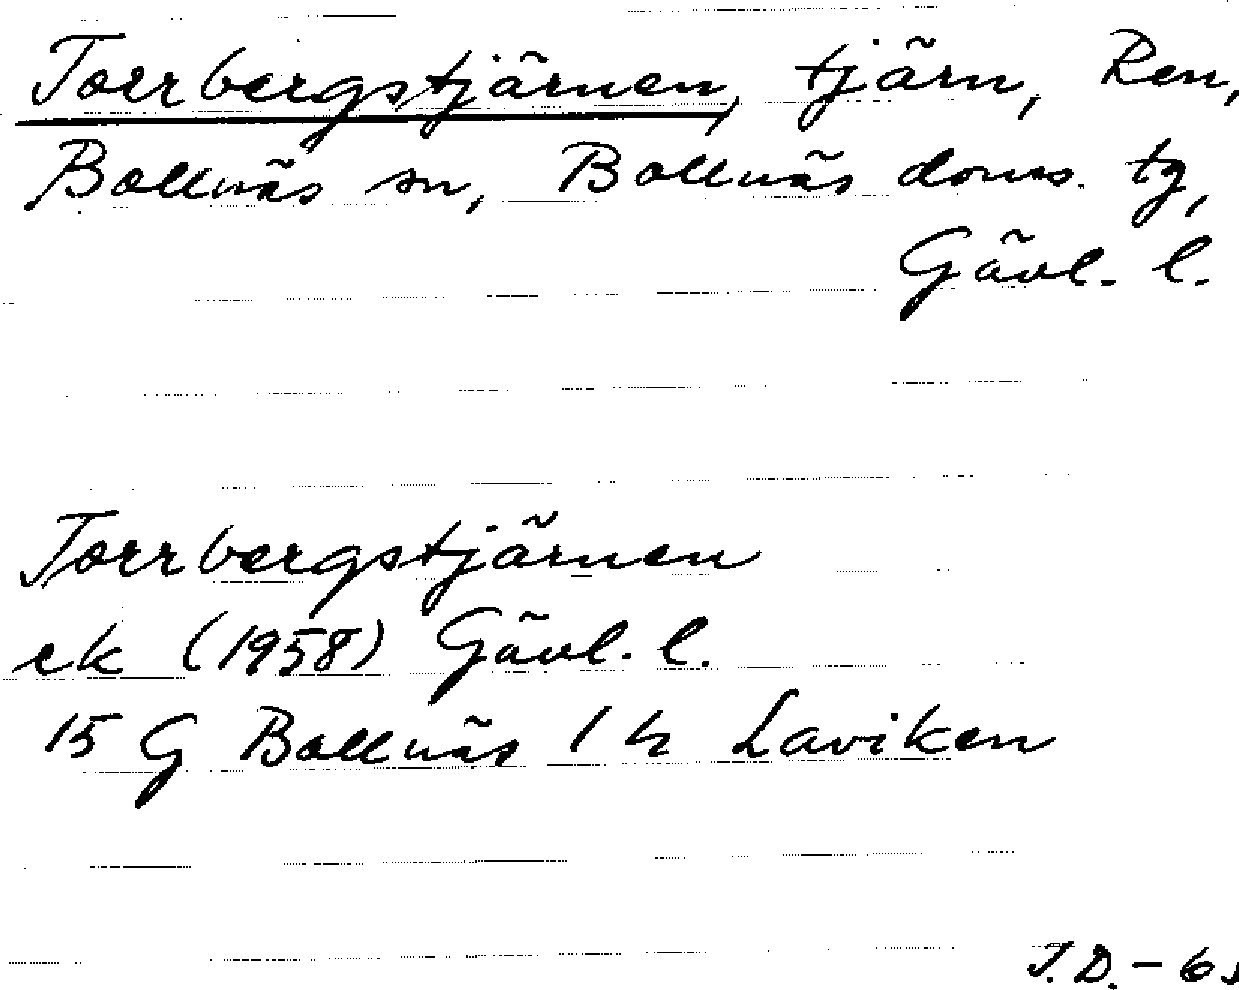 Torrbergstjärnen, tjärn, Ren,
Bollnäs sn, Bollnäs doms. tg,
Gävl. l.
Torrbergstjärnen
ek (1958) Gävl. l.
15 G Bollnäs 1 h Laviken
J.D. - 6